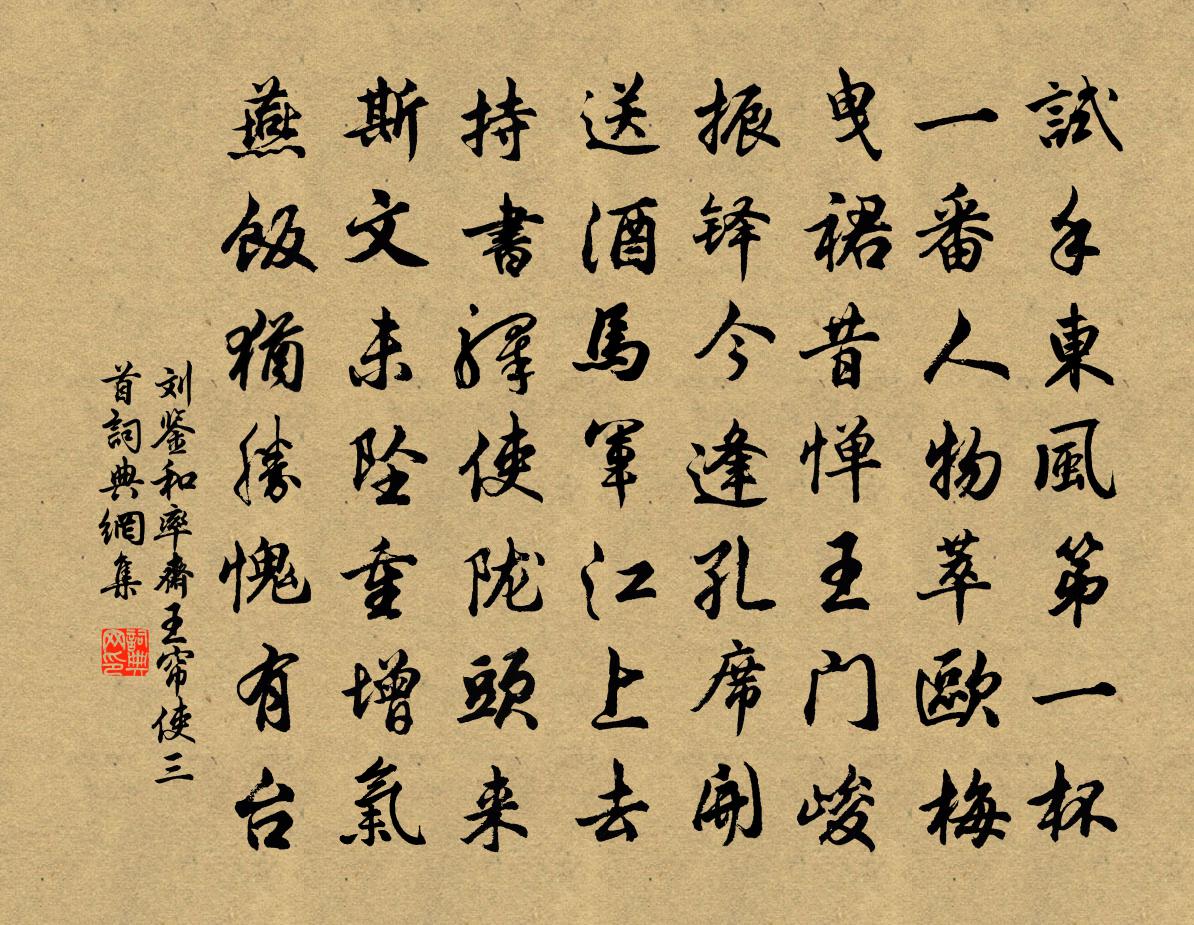 試手東風第一杯
一番人物萃歐梅
曳裾昔惮王门峻
振铎今逢孔席開
送酒馬軍江上去
持書驛使陇頭来
斯文未坠重增氣
燕飯猶勝愧有台
刘鉴和率齋王帘使三
首詞典網集
詞典
网印